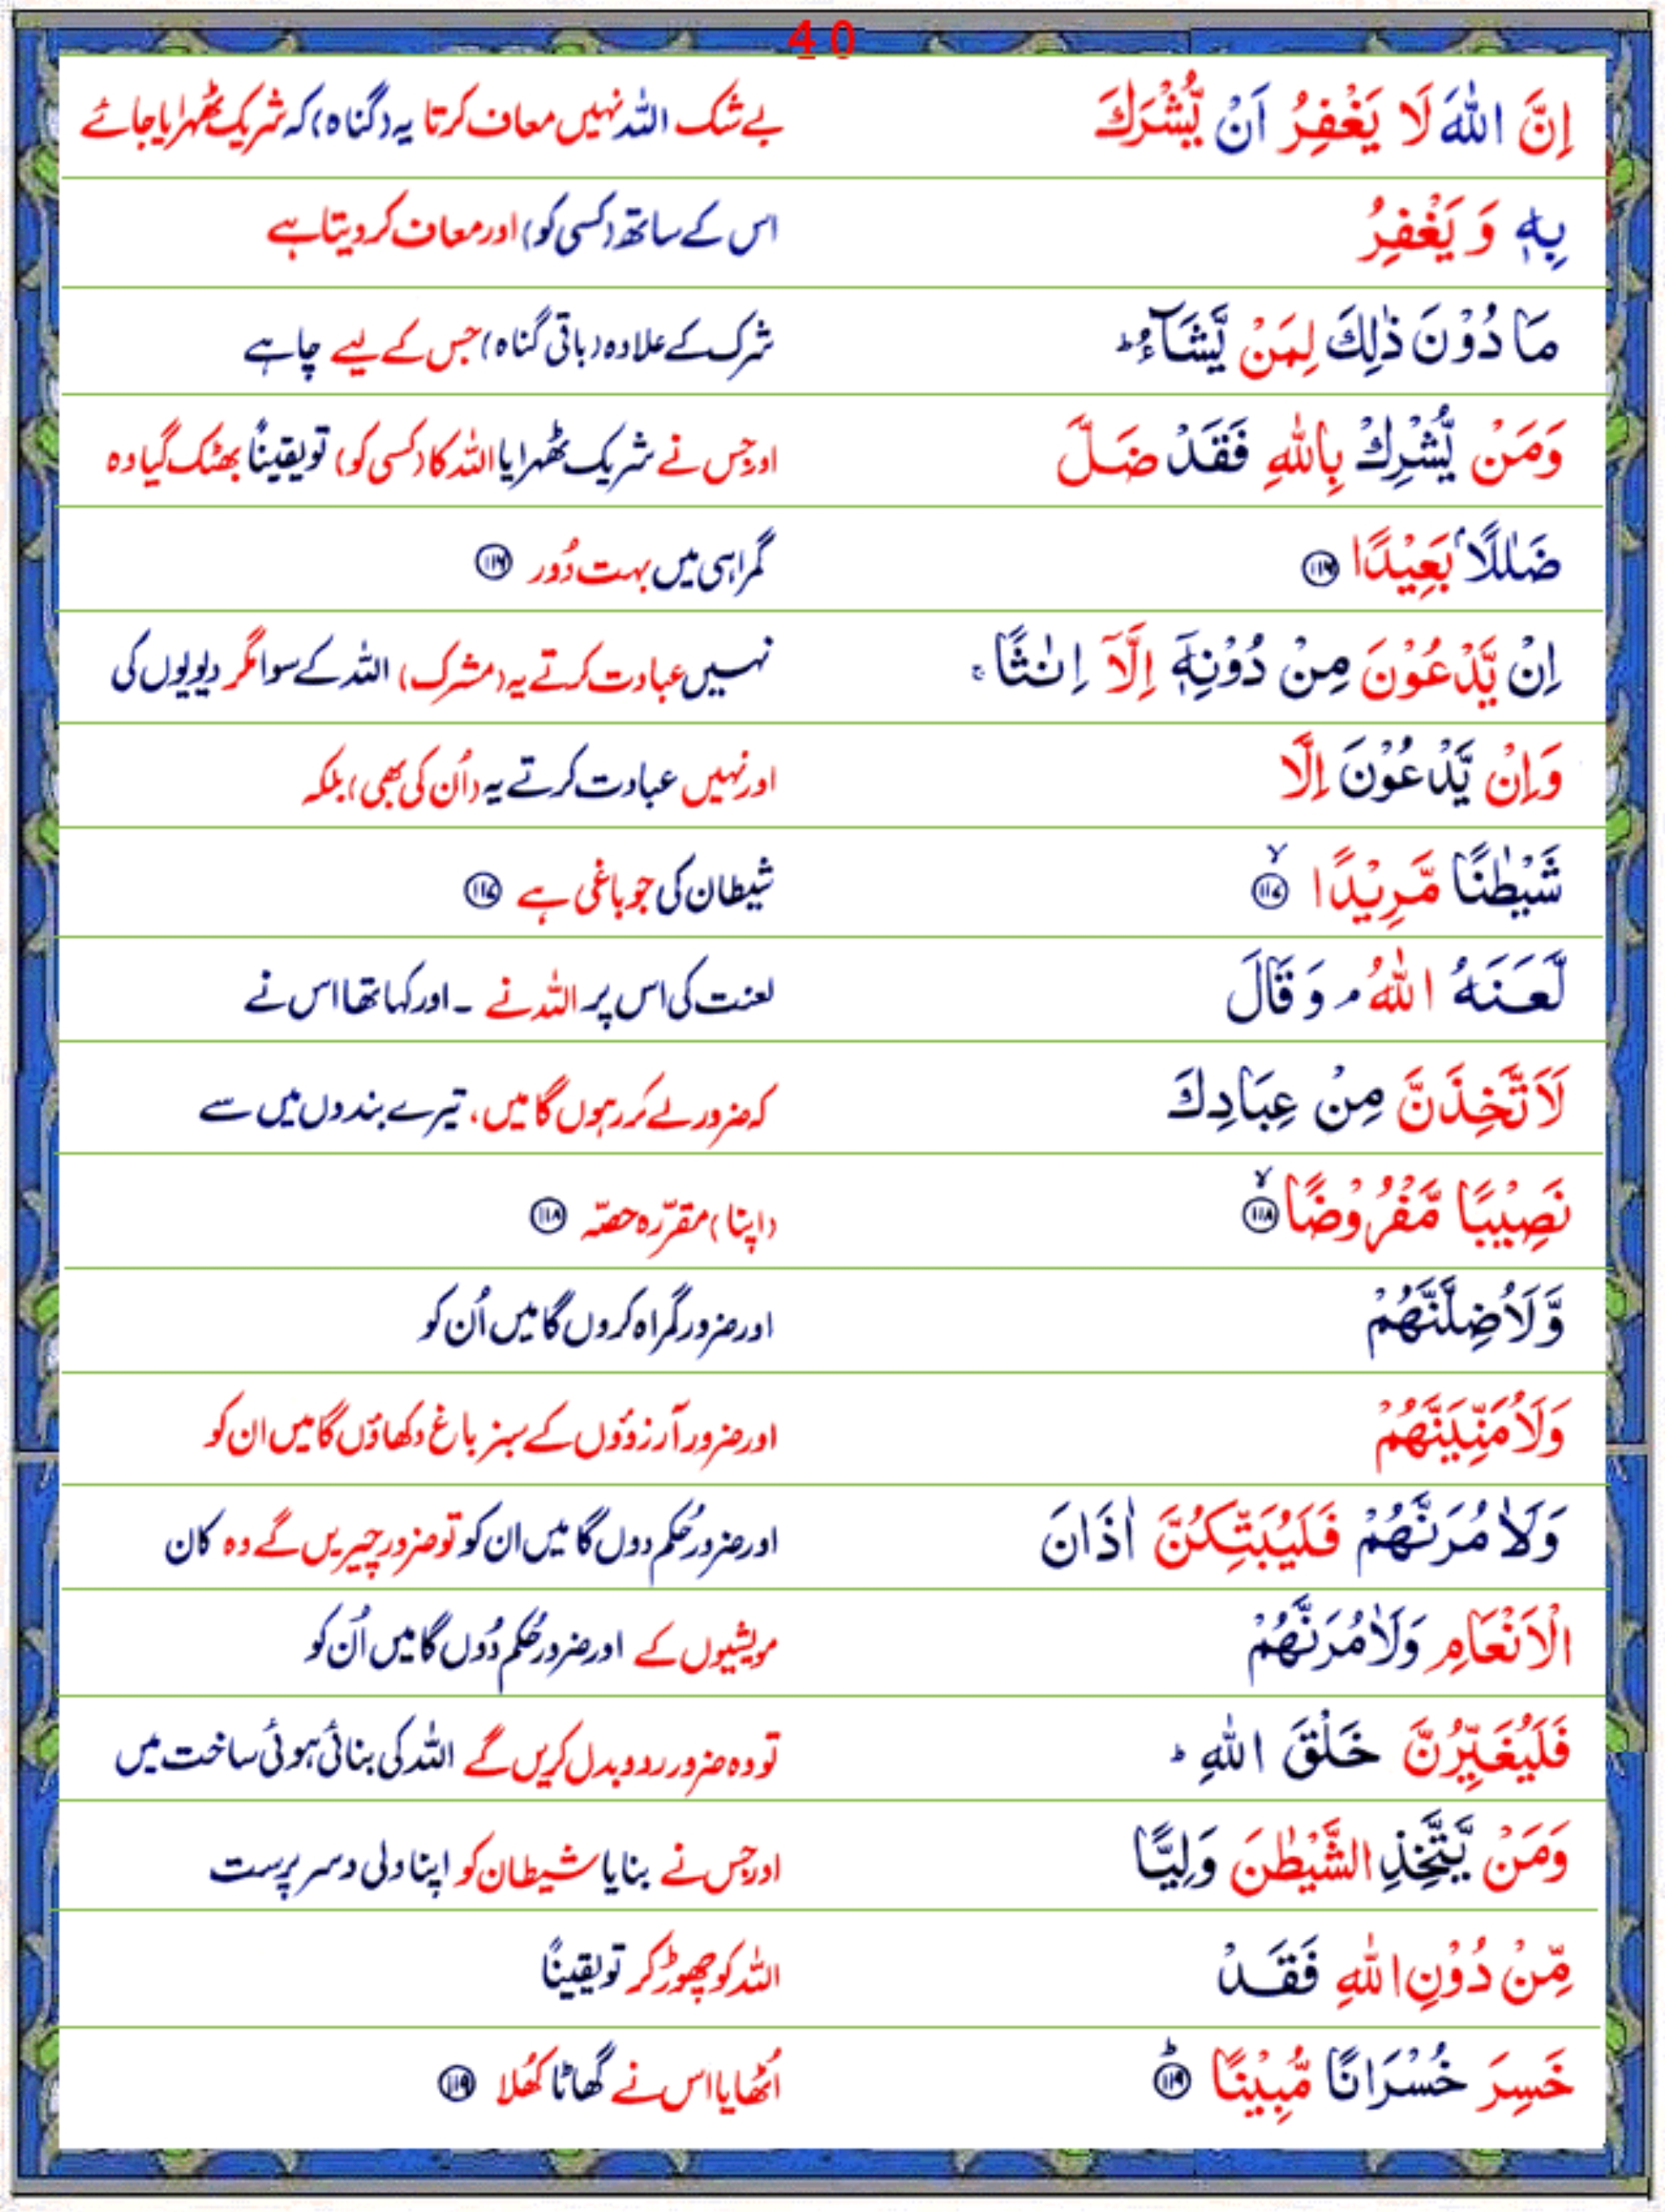 40
اِنَّ اللّٰهَ لَا يَغْفِرُ اَنْ يُّشْرَكَ بے شک اللہ نہیں معاف کرتا یہ (گناہ) کہ شریک ٹھہرایا جائے
بِهٖ وَ يَغْفِرُ اس کے ساتھ (کسی کو) اور معاف کر دیتا ہے
مَا دُوْنَ ذٰلِكَ لِمَنْ يَّشَآءُ ؕ شرک کے علاوہ (باقی گناہ) جس کے لیے چاہے
وَمَنْ يُّشْرِكْ بِاللّٰهِ فَقَدْ ضَلَّ اور جس نے شریک ٹھہرایا اللہ کا (کسی کو) تو یقیناً بھٹک گیا وہ
ضَلٰلًاۢ بَعِيْدًا ۝۱۱۶ گمراہی میں بہت دُور ۝۱۱۶
اِنْ يَّدْعُوْنَ مِنْ دُوْنِهٖٓ اِلَّآ اِنٰثًا ۚ نہیں عبادت کرتے یہ (مشرک) اللہ کے سوا مگر دیویوں کی
وَاِنْ يَّدْعُوْنَ اِلَّا اور نہیں عبادت کرتے یہ (اُن کی بھی) بلکہ
شَيْطٰنًا مَّرِيْدًا ۝۱۱۷ۙ شیطان کی جو باغی ہے ۝۱۱۷
لَّعَنَهُ اللّٰهُ ۘ وَقَالَ لعنت کی اس پر اللہ نے ۔ اور کہا تھا اس نے
لَاَتَّخِذَنَّ مِنْ عِبَادِكَ کہ ضرور لے کر رہوں گا میں، تیرے بندوں میں سے
نَصِيْبًا مَّفْرُوْضًا ۝۱۱۸ۙ (اپنا) مقرّرہ حصّہ ۝۱۱۸
وَّلَاُضِلَّنَّهُمْ اور ضرور گمراہ کروں گا میں اُن کو
وَلَاُمَنِّيَنَّهُمْ اور ضرور آرزوؤں کے سبز باغ دکھاؤں گا میں ان کو
وَلَاٰمُرَنَّهُمْ فَلَيُبَتِّكُنَّ اٰذَانَ اور ضرور حُکم دوں گا میں ان کو تو ضرور چیریں گے وہ کان
الْاَنْعَامِ وَلَاٰمُرَنَّهُمْ مویشیوں کے اور ضرور حُکم دُوں گا میں اُن کو
فَلَيُغَيِّرُنَّ خَلْقَ اللّٰهِ ؕ تو وہ ضرور ردوبدل کریں گے اللہ کی بنائی ہوئی ساخت میں
وَمَنْ يَّتَّخِذِ الشَّيْطٰنَ وَلِيًّا اور جس نے بنایا شیطان کو اپنا ولی و سرپرست
مِّنْ دُوْنِ اللّٰهِ فَقَدْ اللہ کو چھوڑ کر تو یقیناً
خَسِرَ خُسْرَانًا مُّبِيْنًا ۝۱۱۹ؕ اُٹھایا اس نے گھاٹا کھُلا ۝۱۱۹